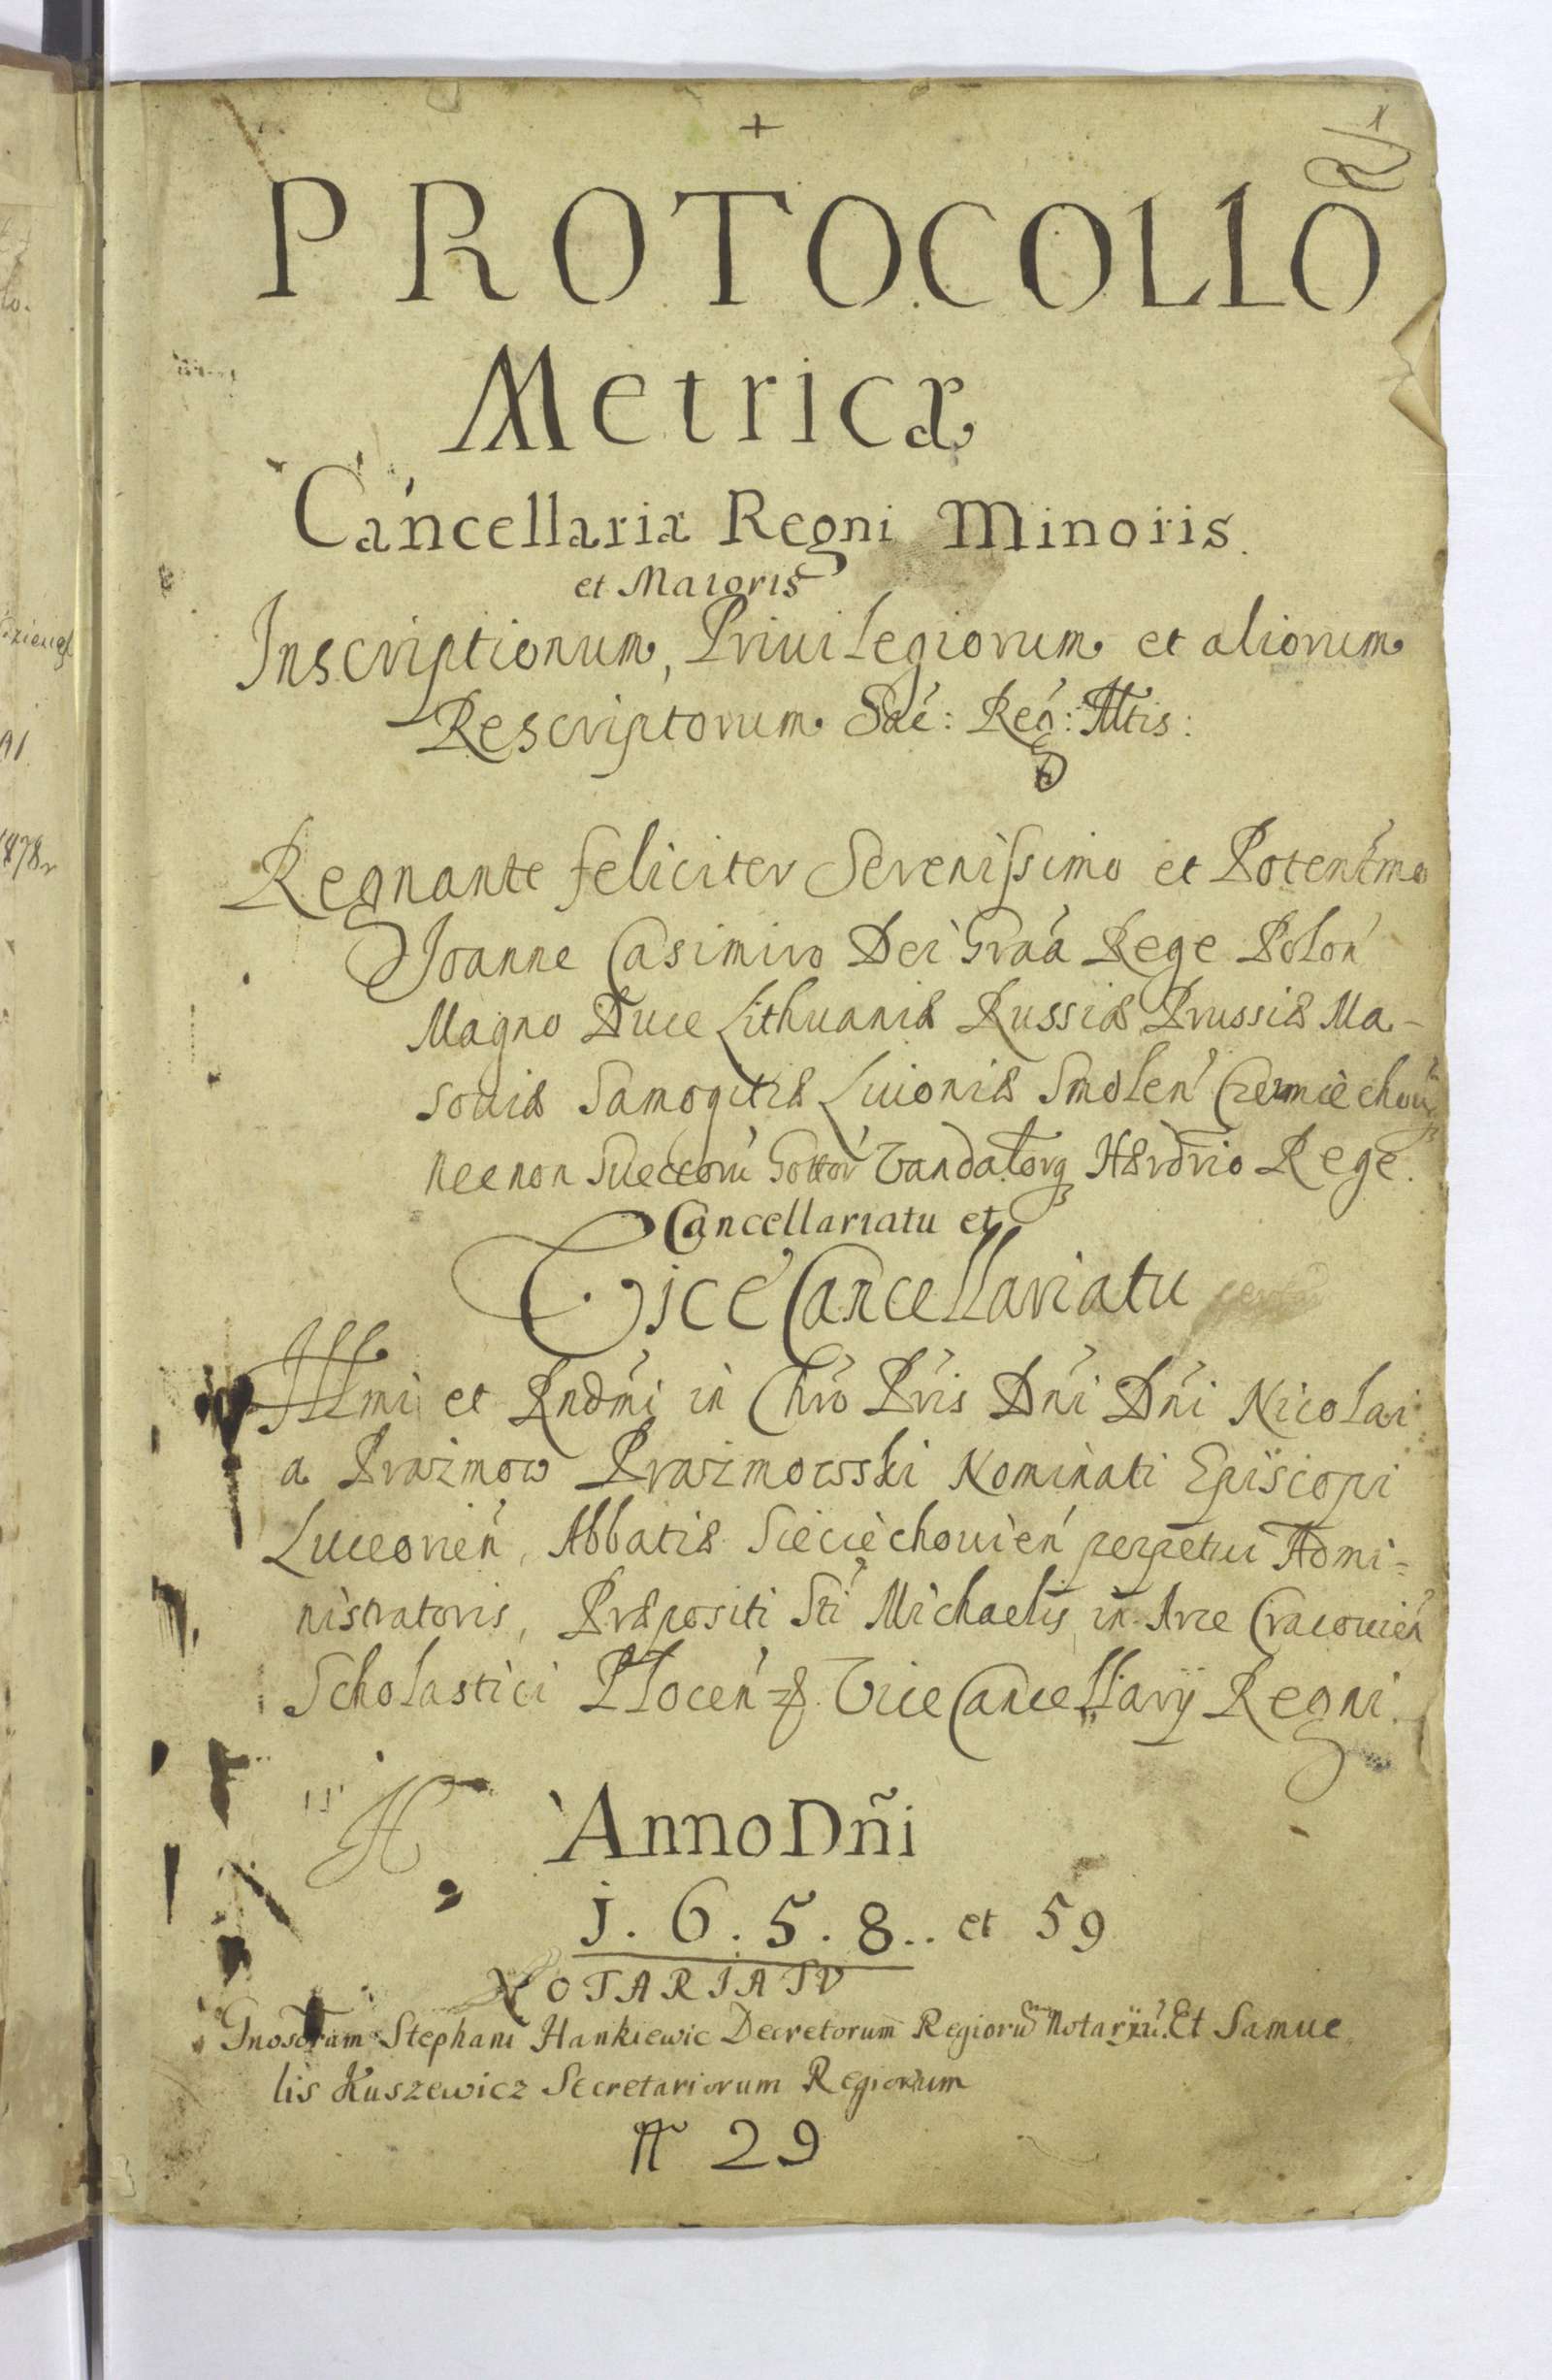 +
PROTOCOLLÕ
Metricæ
Cancellariæ Regni Minoris.
et Maioris
Inscriptionum, Priuilegiorum et aliorum
Rescriptorum Sac: Reg: Mtis:
Regnante feliciter Serenissimo et Potentmo
Joanne Casimiro Dei Graa Rege Polon
Magno Duce Lithuaniæ Russiæ Prussiæ Ma-
souiæ Samogitiæ Liuoniæ Smolen Czerniechouq
necnon Sueccorū Gottor Vandalorq Hærdrio Rege.
Cancellariatu et
Vice Cancellariatu
Illmi et Rndmi in Chro Pris Dni Dni Nicolai
a Prażmow Prażmowsski Nominati Episcopi
Luceorien, Abbatis Sieciechouien perpetui Admi=
nistratoris, Præpositi Sti Michaelis in Arce Cracouien
Scholastici Plocen & Vice Cancellarij Regni.
Anno Dñi
j. 6. 5. 8.. et 59
NOTARIATV
Gnosorum Stephani Hankiewic Decretorum Regiorū Notarij. Et Samue
lis Kuszewicz Secretariorum Regiorum
29